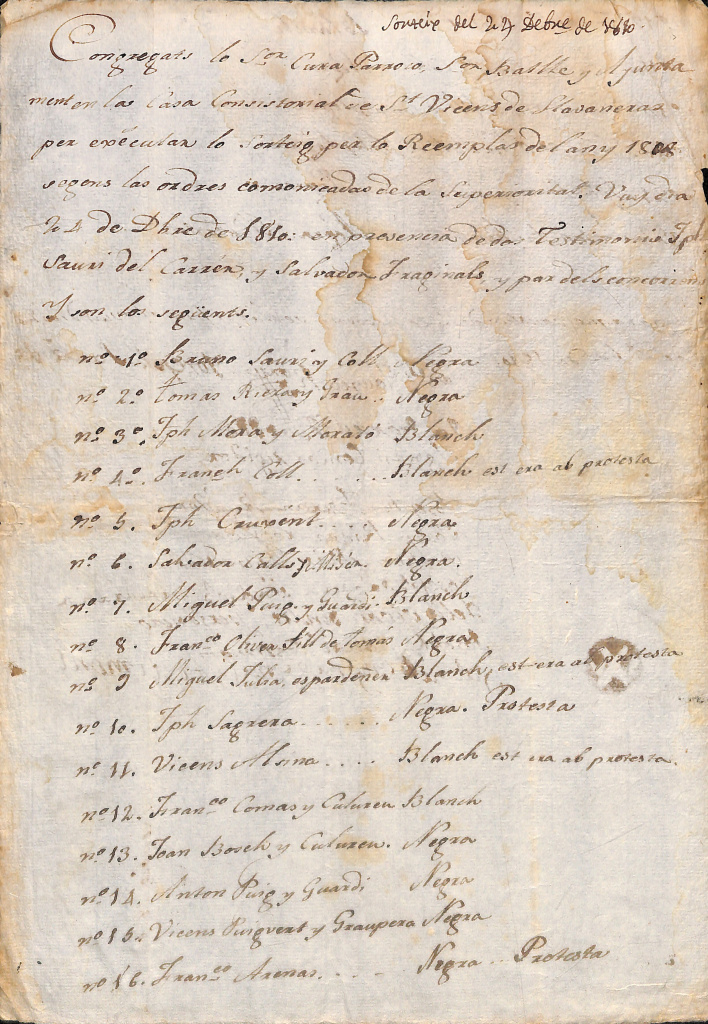 Sorteig del 24 Debre de 1810.
Congregats lo Sor Cura Parroco, Sor Batlle y Ajunta
ment en las Casa Consistorial de St Vicens de Llavaneras
per executar lo Sorteig per lo Reemplas del any 1808
segons las ordres comonicadas de la Superioritat. Vuy dia
24 de Dbre de 1810. en presencia de dos Testimonis Jph
Sauri del Carrer, y Salvador Fraginals, y par dels concorrens
Y son los següents.
no 1o Bruno Sauri y Coll Negra
no 2o Tomas Riera y Grau.. Negra
no 3o. Jph Mora y Morató Blanch
no 4o. Franch Coll..... Blanch est era ab protesta
no 5. Jph Cruxent.... Negra
no 6. Salvador Calls Negra.
no 7. Miguel Puig y Guardi. Blanch
no 8. Franco Oliver fill de tomas Negra
no 9 Miguel Julia, espardeñer Blanch, est era ab protesta
no 10. Jph Sagrera...... Negra. Protesta
no 11. Vicens Alsina.... Blanch est era ab protesta.
no 12. Franco Comas y Culureu Blanch
no 13. Joan Bosch y Cullureu. Negra
no 14. Anton Puig y Guardi Negra
no 15. Vicens Puigvert y Graupera Negra
no 16. Franco Arenas.... Negra.. Protesta